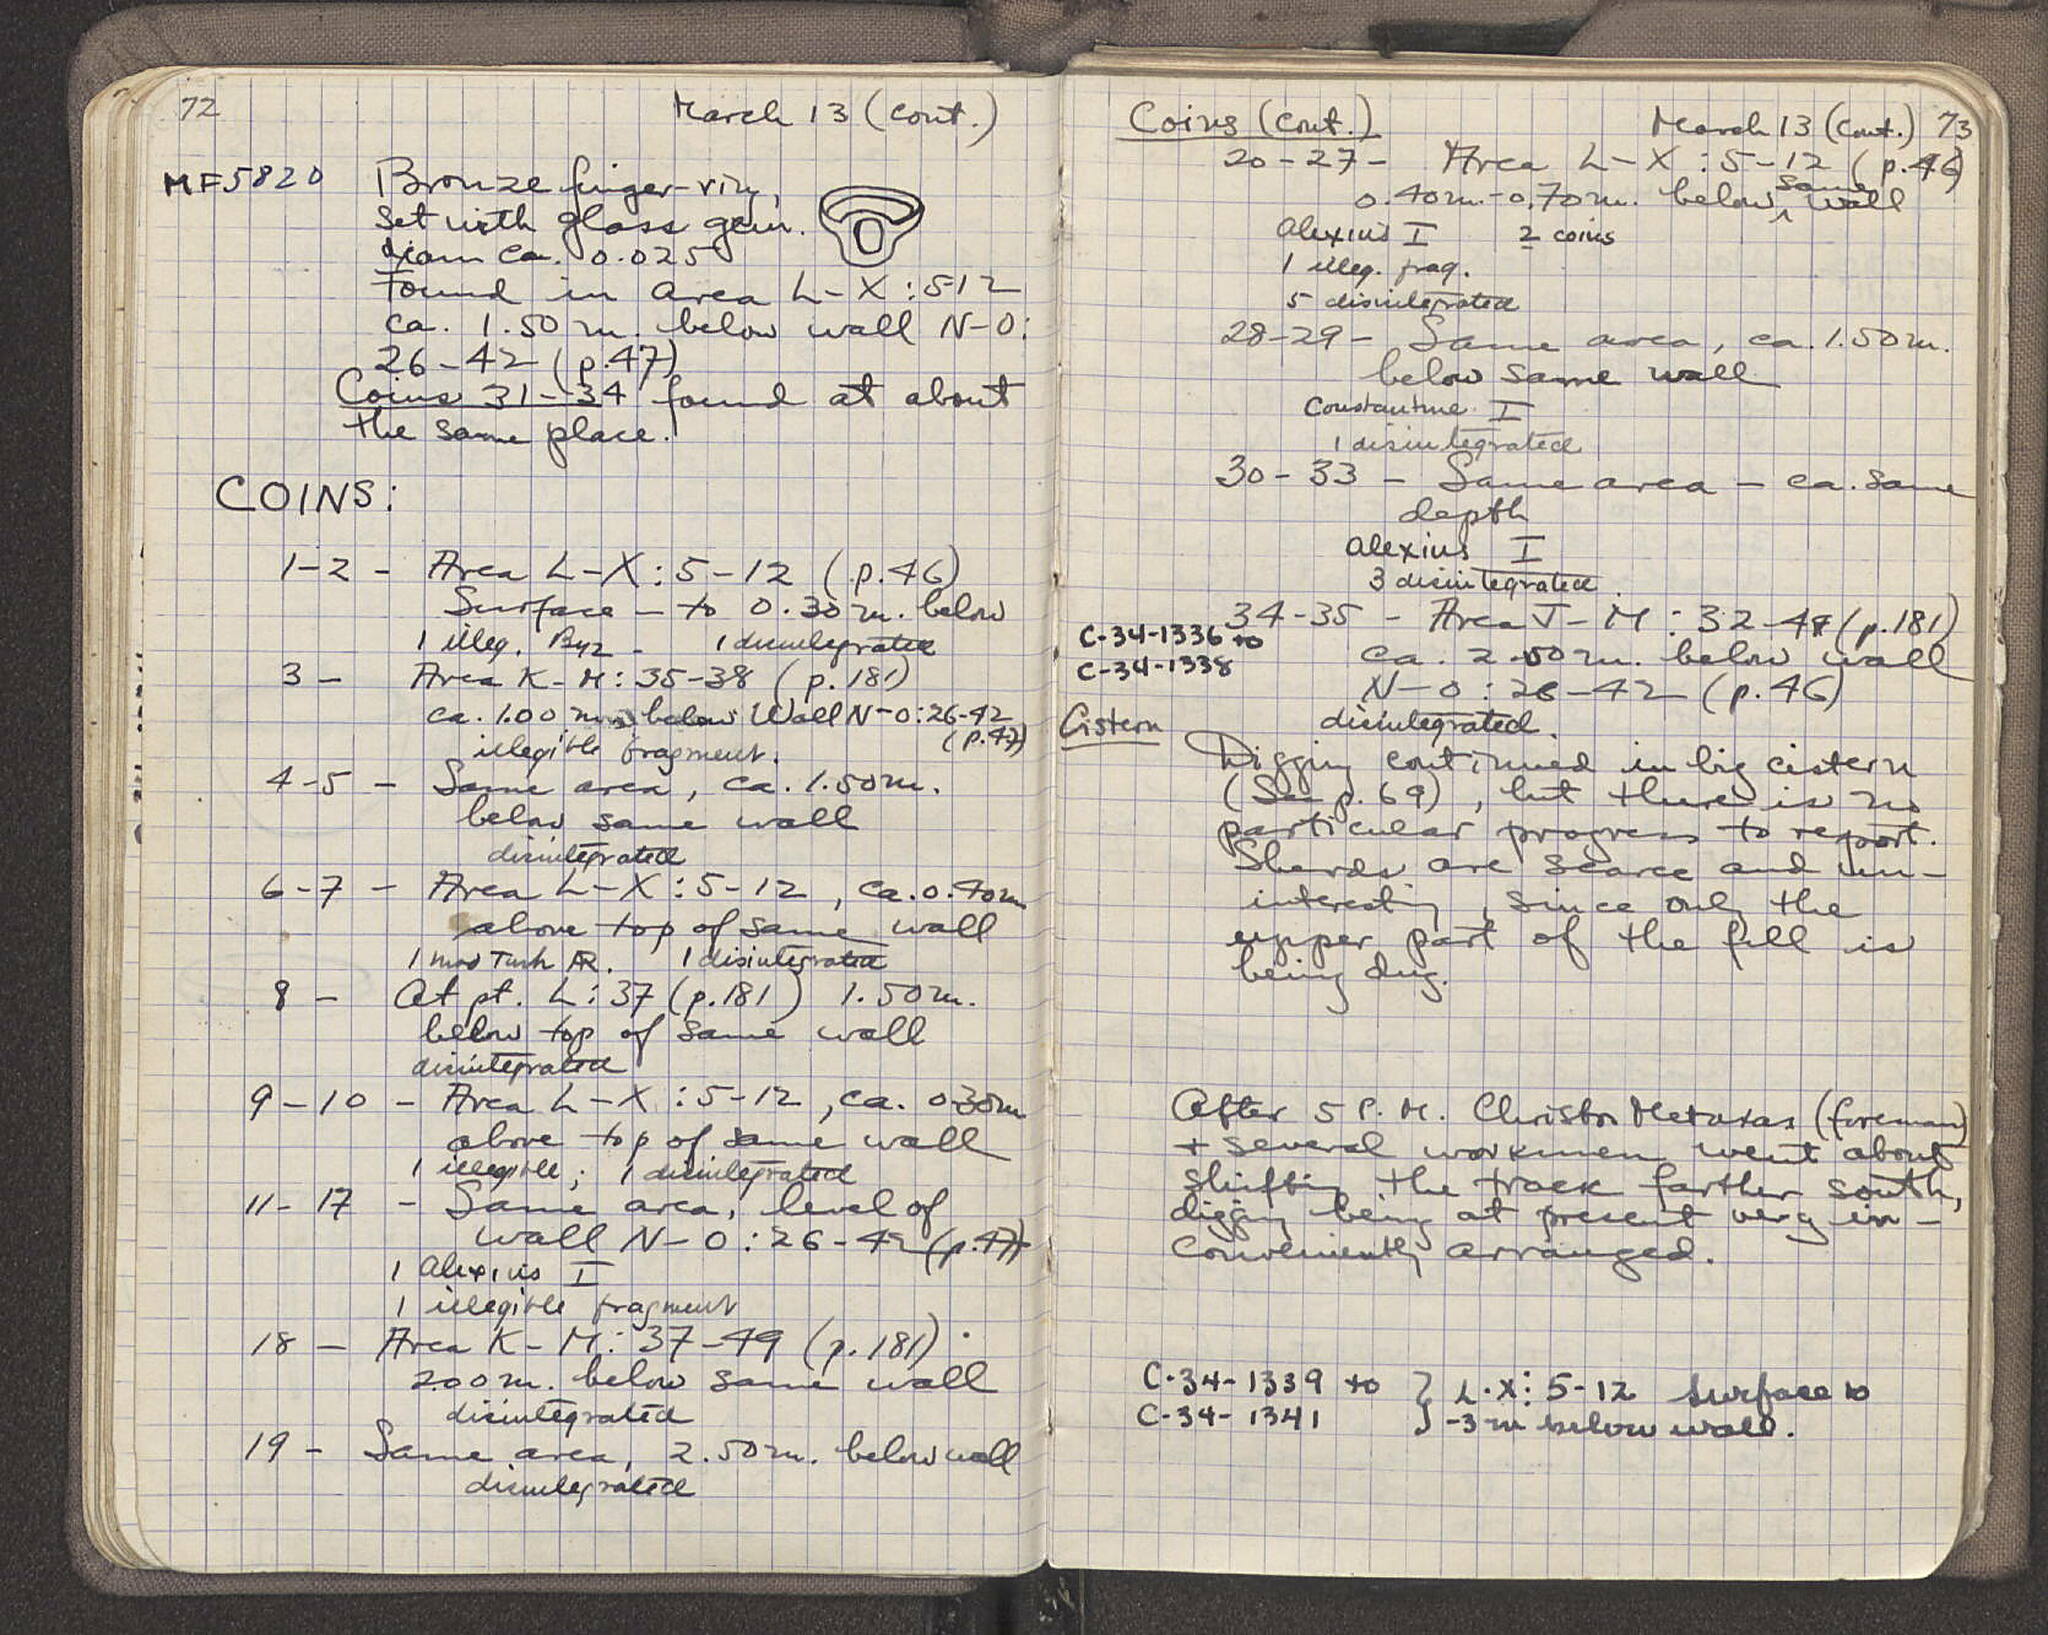 72
March 13 (cont.)
MF5820 Bronze finger-ring,
set with glass gem.
diam ca. 0.025
Found in area L-X:5-12
ca. 1.50 m. below wall N-O:
26-42 (p.47)
Coins 31-34 found at about
the same place.
COINS:
1-2 - Area L-X:5-12 (p.46)
Surface - to 0.30 m. below
1 illeg. Byz - 1 disintegrated
3 - Area K-M:35-38 (p.181)
ca. 1.00 m. below Wall N-O:26-42
(p.47)
illegible fragment.
4-5 - Same area, ca. 1.50 m.
below same wall
disintegrated
6-7 - Area L-X:5-12, ca. 0.40 m
above top of same wall
1 mod Turk AR. 1 disintegrated
8 - At pt. L:37 (p.181) 1.50 m.
below top of same wall
disintegrated
9-10 - Area L-X:5-12, ca. 0.30 m
above top of same wall
1 illegible; 1 disintegrated
11-17 - Same area, level of
wall N-O:26-42 (p.47)
1 Alexius I
1 illegible fragment
18 - Area K-M:37-49 (p.181)
2.00 m. below same wall
disintegrated
19 - Same area, 2.50 m. below wall
disintegrated
Coins (cont.)
March 13 (cont.) 73
20-27 - Area L-X:5-12 (p.46)
0.40 m.-0.70 m. below same wall
Alexius I 2 coins
1 illeg. frag.
5 disintegrated
28-29 - Same area, ca. 1.50 m.
below same wall
Constantine I
1 disintegrated
30-33 - Same area - ca. same
depth
Alexius I
3 disintegrated.
34-35 - Area J-M:32-47 (p.181)
C-34-1336 to
C-34-1338
ca. 2.50 m. below wall
N-O:26-42 (p.46)
disintegrated.
Cistern
Digging continued in big cistern
(See p. 69), but there is no
particular progress to report.
Sherds are scarce and un-
interesting, since only the
upper part of the fill is
being dug.
After 5 P.M. Christos Metaxas (foreman)
+ several workmen went about
shifting the track farther south,
digging being at present very in-
conveniently arranged.
C-34-1339 to } L-X:5-12 surface to
C-34-1341 } -3 m below wall.